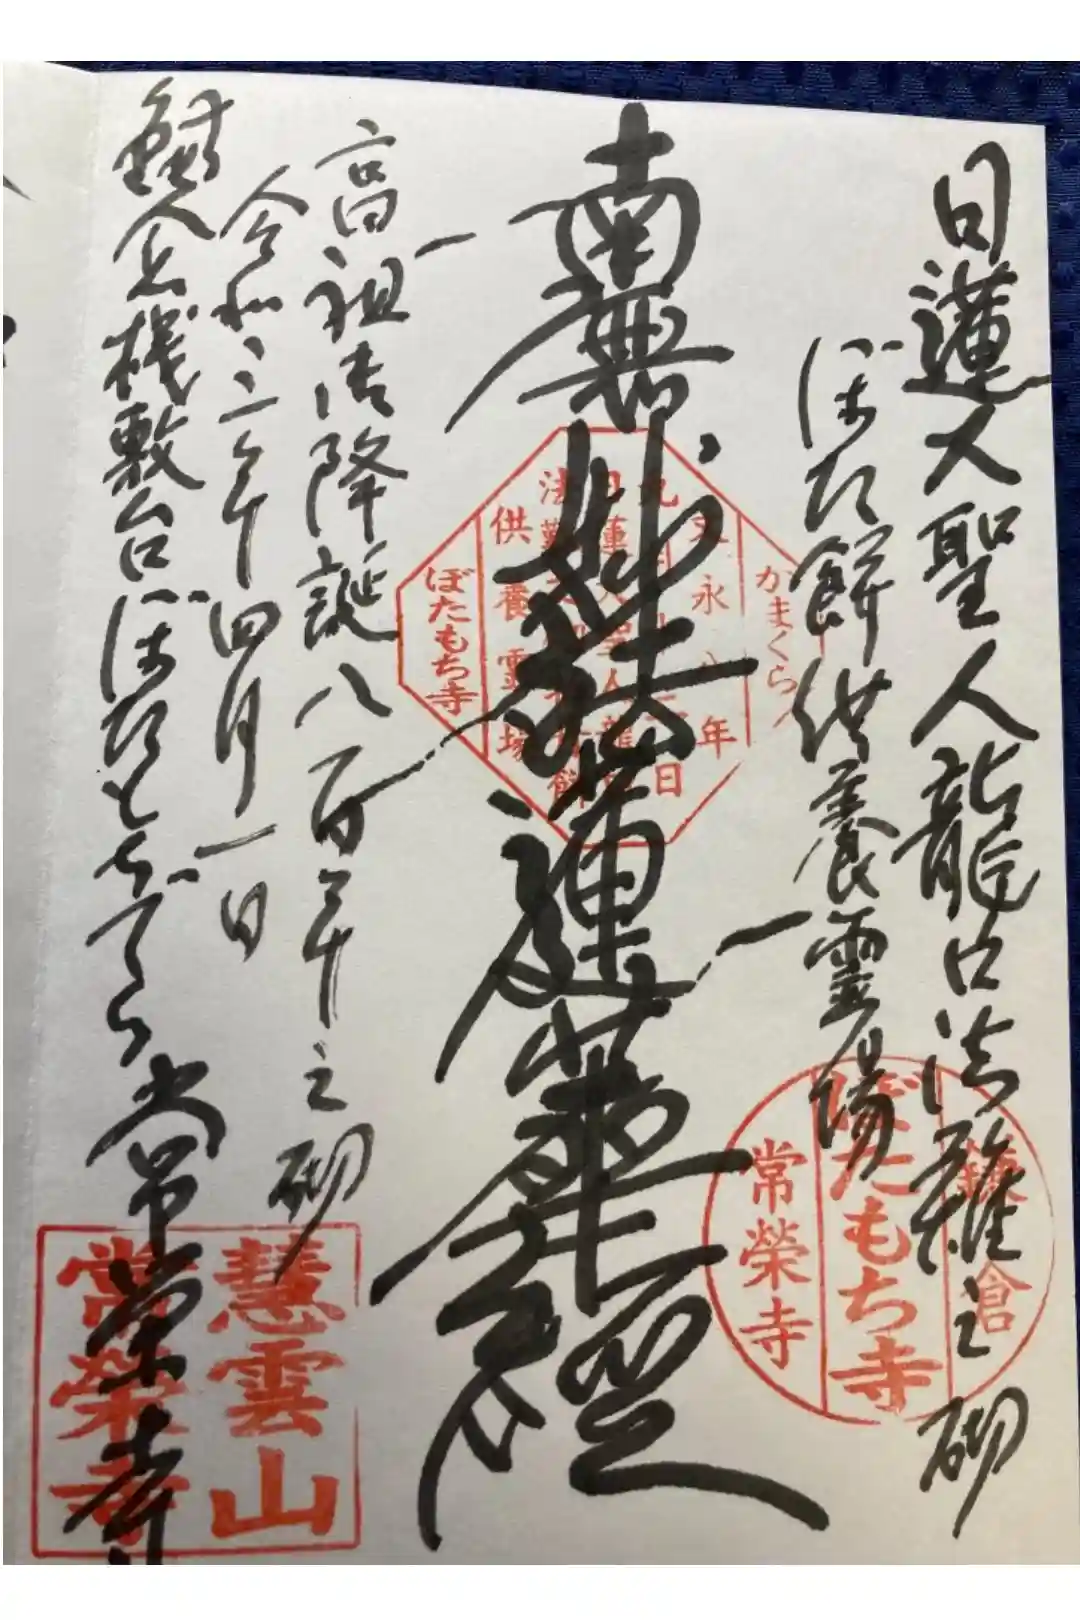 日蓮大聖人龍口法難之砌
ぼた餅供養霊場
南無妙法蓮華経
高祖御降誕八百年之砌
令和三年四月一日
鎌倉桟敷台ぼたもちでら常栄寺
かまくら
文永八年
供養霊場
ぼたもち寺
鎌倉
ぼたもち寺
常榮寺
慧雲山
常榮寺